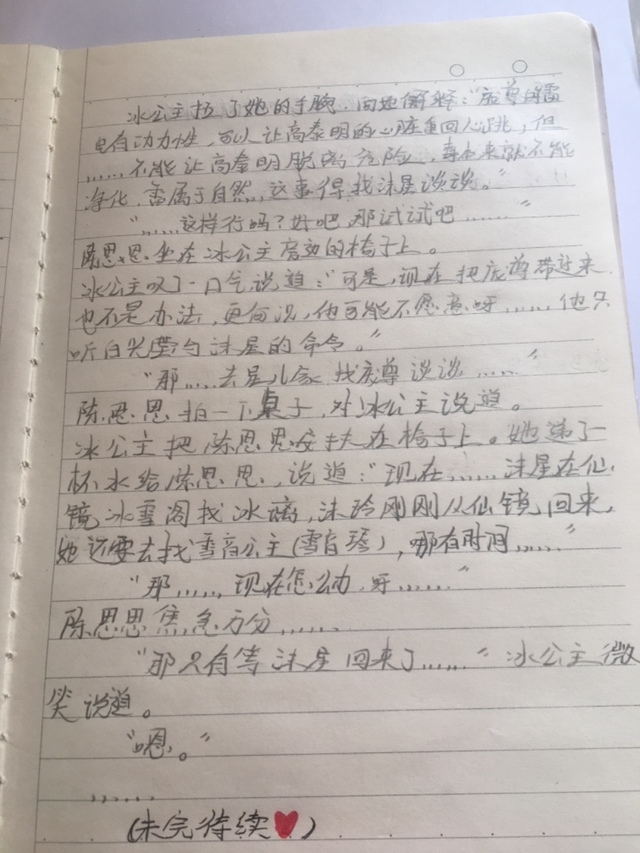 冰公主拉了她的手腕,向她解释:“庞尊的雷
电有动力性,可以让高泰明的心脏重回心跳,但
……不能让高泰明脱离危险,毒本来就不能
净化,毒属于自然,这事得找沫星谈谈。”
“……这样行吗?好吧,那试试吧……”
陈思思坐在冰公主旁边的椅子上。
冰公主叹了一口气说道:“可是,现在把庞尊带过来
也不是办法,更何况,他可能不愿意呀……他只
听白光莹与沫星的命令。”
“那……去星儿家找庞尊谈谈……”
陈思思拍一下桌子,对冰公主说道。
冰公主把陈思思安扶在椅子上。她递了一
杯水给陈思思,说道:“现在……沫星在仙
镜冰雪阁找冰璃,沫玲刚刚从仙镜回来,
她还要去找雪音公主(雪音琴),哪有时间……”
“那……现在怎么办呀……”
陈思思焦急万分……
“那只有等沫星回来了……”冰公主微
笑说道。
“嗯。”
……
(未完待续❤)